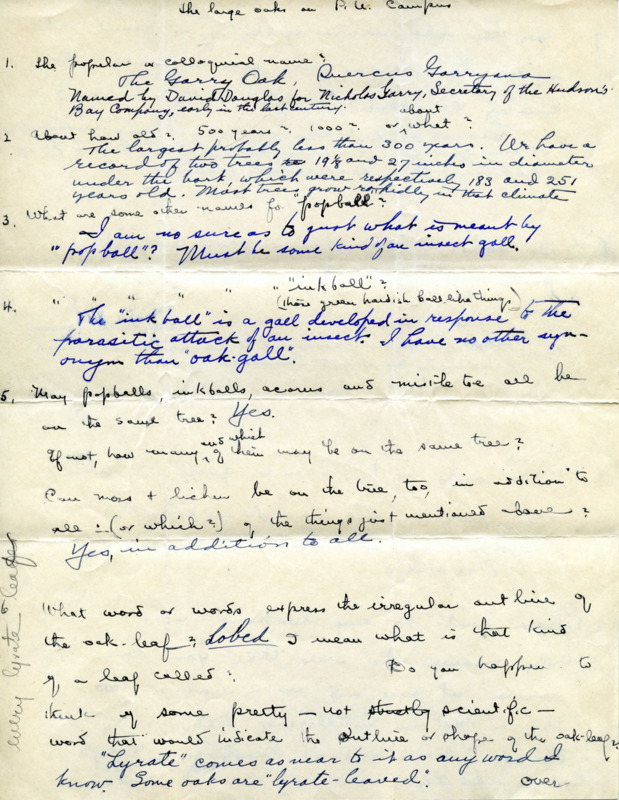 The large oaks on P. U. Campus
1. The popular or colloquial name?
The Garry Oak, Quercus Garryana
Named by David Douglas for Nicholas Garry, Secretary of the Hudson's
Bay Company, early in the last century.
2 About how old? 500 years? 1000? or about what?
The largest probably less than 300 years. We have a
record of two trees 19⅛ and 27 inches in diameter
under the bark, which were respectively 183 and 251
years old. Most trees grow rapidly in that climate
3. What are some other names for "popball"?
I am no sure as to just what is meant by
"popball"? Must be some kind of an insect gall.
4. " " " " " "inkball"?
(those green hardish ball-like things)
The "ink ball" is a gall developed in response to the
parasitic attack of an insect. I have no other syn-
onym than "oak-gall".
5. May popballs, inkballs, acorns and mistletoe all be
on the same tree? Yes.
If not, how many, and which of them may be on the same tree?
Can moss + lichen be on the tree, too, in addition to
all - (or which?) of the things just mentioned above?
Yes, in addition to all.
What word or words express the irregular outline of
the oak-leaf? Lobed I mean what is that kind
of a leaf called? Do you happen to
think of some pretty — not strictly scientific —
word that would indicate the outline or shape of the oak-leaf?
"Lyrate" comes as near to it as any word I
know. Some oaks are "lyrate-leaved".
over
every lyrate leaf